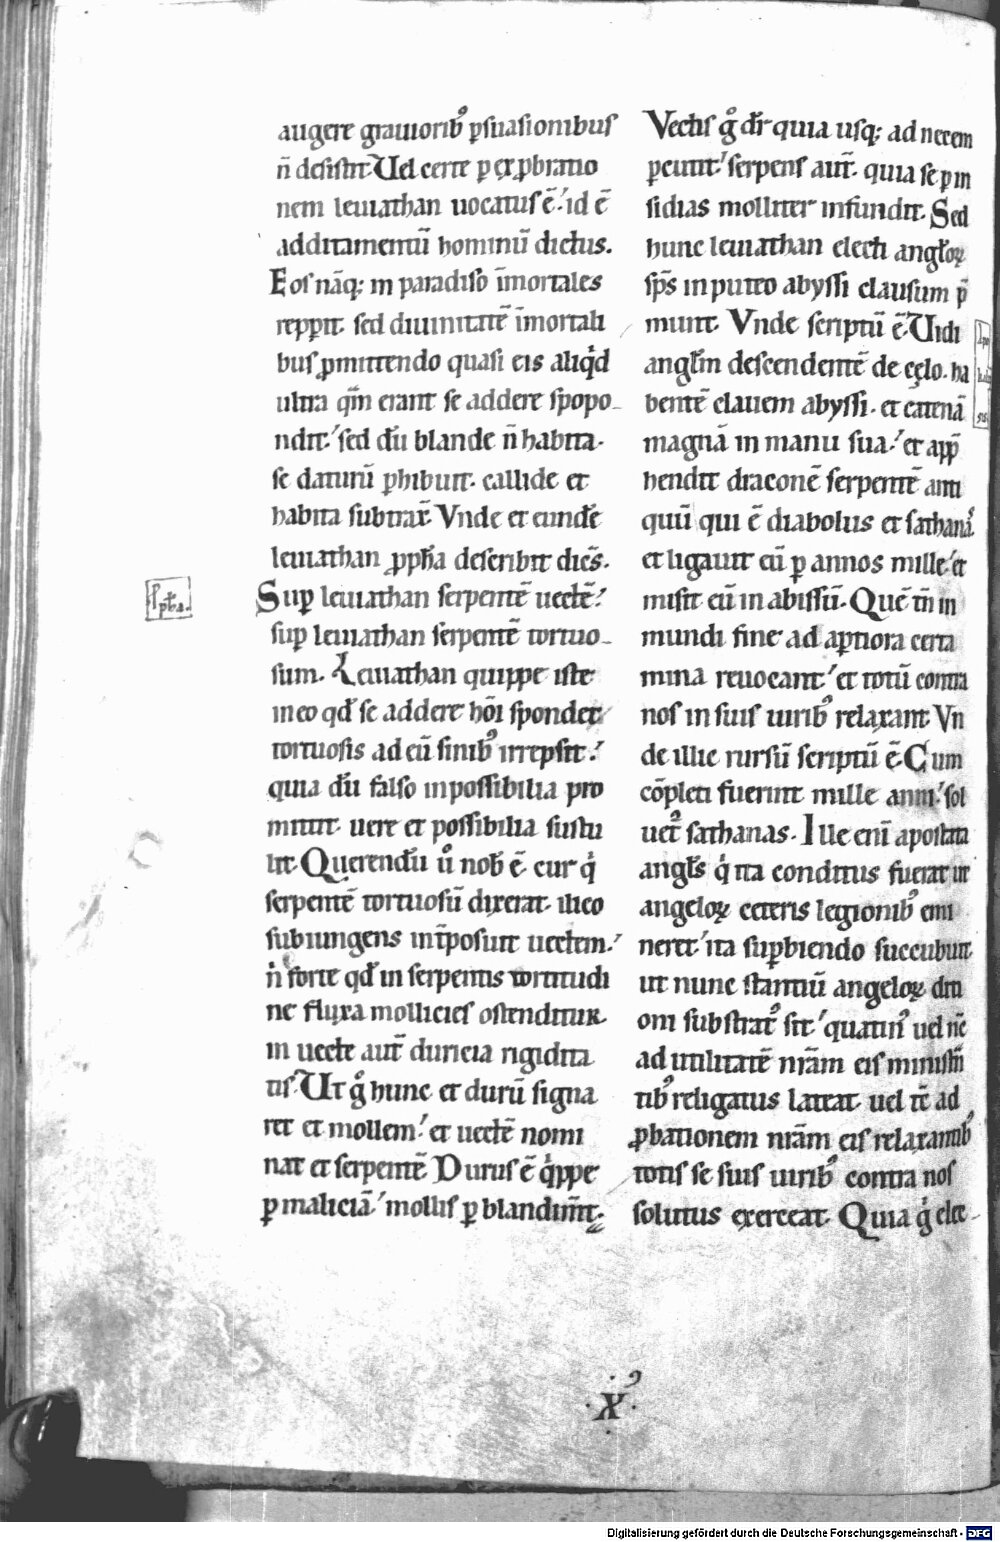 augere grauiorib᷒ ꝑsuasionibus
n̄ desistit. Uel certe ꝑ exprobratio
nem leuiathan uocatus ē. id ē
additamentū hominū dictus.
Eos nāq; in paradiso īmortales
repperit. sed diuinitatē īmortali
bus ꝓmittendo quasi eis aliqͥd
ultra qm̄ erant se addere spopo-
ndit. sed dū blande n̄ habita.
se daturū ꝑhibuit. callide et
habita subtrax̄. Vnde et eundē
leuiathan ꝓph̄a describit dicēs.
Suꝑ leuiathan serpentē uectē.
suꝑ leuiathan serpentē tortuo-
sum. Leuiathan quippe iste
in eo qd̄ se addere hōi spondet
tortuosis ad eū sinib᷒ irrepsit.
quia dū falso inpossibilia pro
mittit. uere et possibilia sustu
lit. Querendū uͦ nob̄ ē. cur qͥ
serpentē tortuosū dixerat. ilico
subiungens int̄posuit uectem.
nͥ forte qd̄ in serpentis tortitudi
ne fluxa mollicies ostenditur.
in uecte aut̄ duricia rigidita
tis. Ut gͦ hunc et durū signa
ret et mollem. et uectē nomi
nat et serpentē Durus ē qͥppe
ꝑ maliciā. mollis ꝑ blandim̄t.
Vectis gͦ dr̄ quia usq; ad necem
ꝑcutit. serpens aut̄. quia se ꝑ in
sidias molliter infundit. Sed
hunc leuiathan electi angl̄oꝝ
sp̄s in puteo abyssi clausum p̄
munt. Vnde scriptū ē. Uidi
angl̄m descendentē de cęlo. ha
bentē clauem abyssi. et catenā
magnā in manu sua. et app̄
hendit draconē serpentē anti
quū qui ē diabolus et sathanas.
et ligauit eū ꝑ annos mille. et
misit eū in abissū. Quē tn̄ in
mundi fine ad aꝑtiora certa
mina reuocant. et totū contra
nos in suis uirib᷒ relaxant Vn
de illic rursū scriptū ē. Cum
cōpleti fuerint mille anni. sol
uet᷒ sathanas. Ille enī apostata
angl̄s qͥ ita conditus fuerat ut
angeloꝝ ceteris legionib᷒ emi
neret. ita suꝑbiendo succubuit
ut nunc stantiū angeloꝝ diti
oni substrat᷒ sit. quatin᷒ uel nc̄
ad utilitatē nr̄am eis ministr̄
tib᷒ religatus lateat. uel tc̄ ad
ꝓbationem nr̄am eis relaxantib᷒
totis se suis uirib᷒ contra nos
solutus exerceat. Quia gͦ elec-
.X᷒.
Digitalisierung gefördert durch die Deutsche Forschungsgemeinschaft - DFG